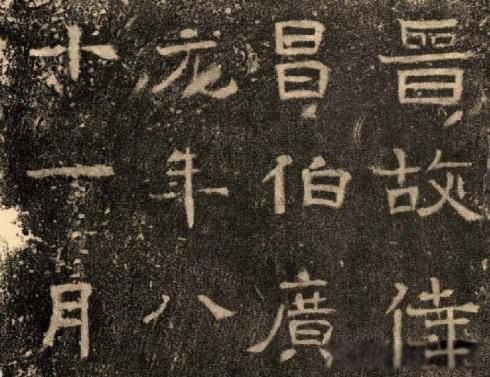 晉故
昌伯廣
元年八
十一月